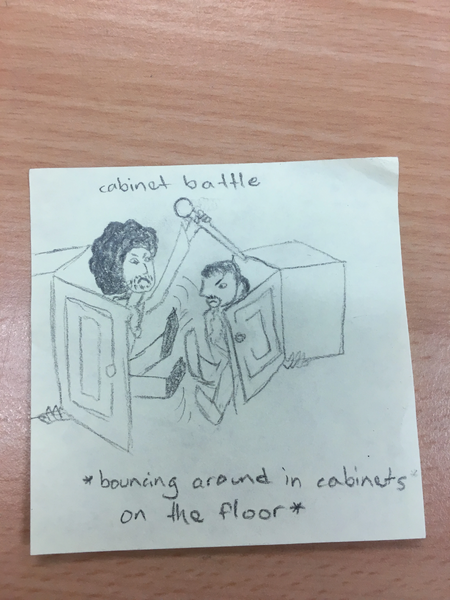 cabinet battle
*bouncing around in cabinets*
on the floor*